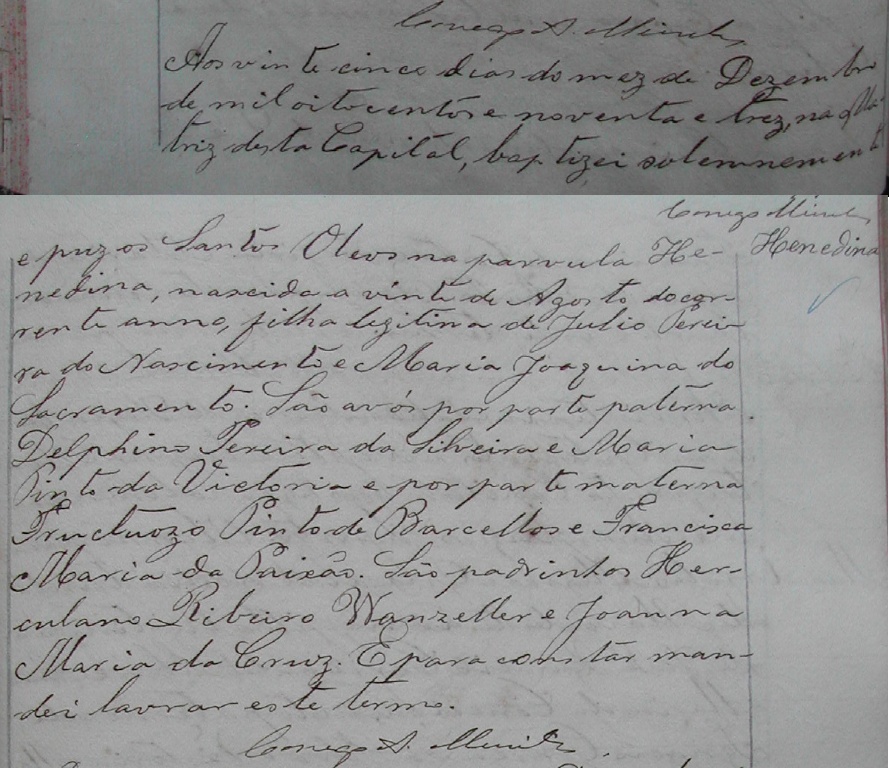 Conego A. Muniz
Aos vinte cinco dias do mez de Dezembro
de mil oitocentos e noventa e trez, na Ma-
triz desta Capital, baptizei solemnemente
Conego Muniz
e puz os Santos Oleos na parvula He-
Henedina
nedina, nascida a vinte de Agosto do cor-
rente anno, filha legitima de Julio Perei-
ra do Nascimento e Maria Joaquina do
Sacramento. São avós por parte paterna
Delphino Pereira da Silveira e Maria
Pinto da Victoria e por parte materna
Fructuozo Pinto de Barcellos e Francisca
Maria da Paixão. São padrinhos Her-
culano Ribeiro Wanzeller e Joanna
Maria da Cruz. E para constar man-
dei lavrar este termo.
Conego A. Muniz